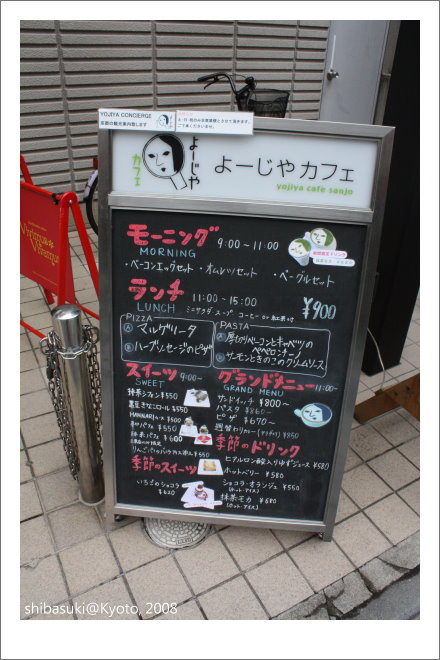 YOJIYA CONCIERGE
京都の観光案内致します
よーじや
カフェ
よーじやカフェ
yojiya cafe sanjo
モーニング 9:00~11:00
MORNING
・ベーコンエッグセット・オムレツセット・ベーグルセット
ランチ 11:00~15:00
LUNCH ミニサラダ スープ コーヒー or 紅茶付 ¥900
PIZZA
Ⓐ マルゲリータ
Ⓑ ハーブソーセージのピザ
PASTA
Ⓐ 厚切りベーコンとキャベツの
ペペロンチーノ
Ⓑ サーモンときのこのクリームソース
スイーツ 9:00~
SWEET
抹茶シフォン ¥550
黒豆きなこロール ¥550
¥550
抹茶パフェ ¥600
季節のスイーツ
いちごのショコラ
¥620
グランドメニュー 11:00~
GRAND MENU
サンドイッチ ¥800~
パスタ ¥860~
ピザ ¥670~
週替わりカレー ¥850
季節のドリンク
ヒアルロン酸入りゆずジュース ¥580
ホットベリー ¥580
ショコラ・オランジュ ¥550
(ホット・アイス)
抹茶モカ ¥680
(ホット・アイス)
shibasuki@Kyoto, 2008